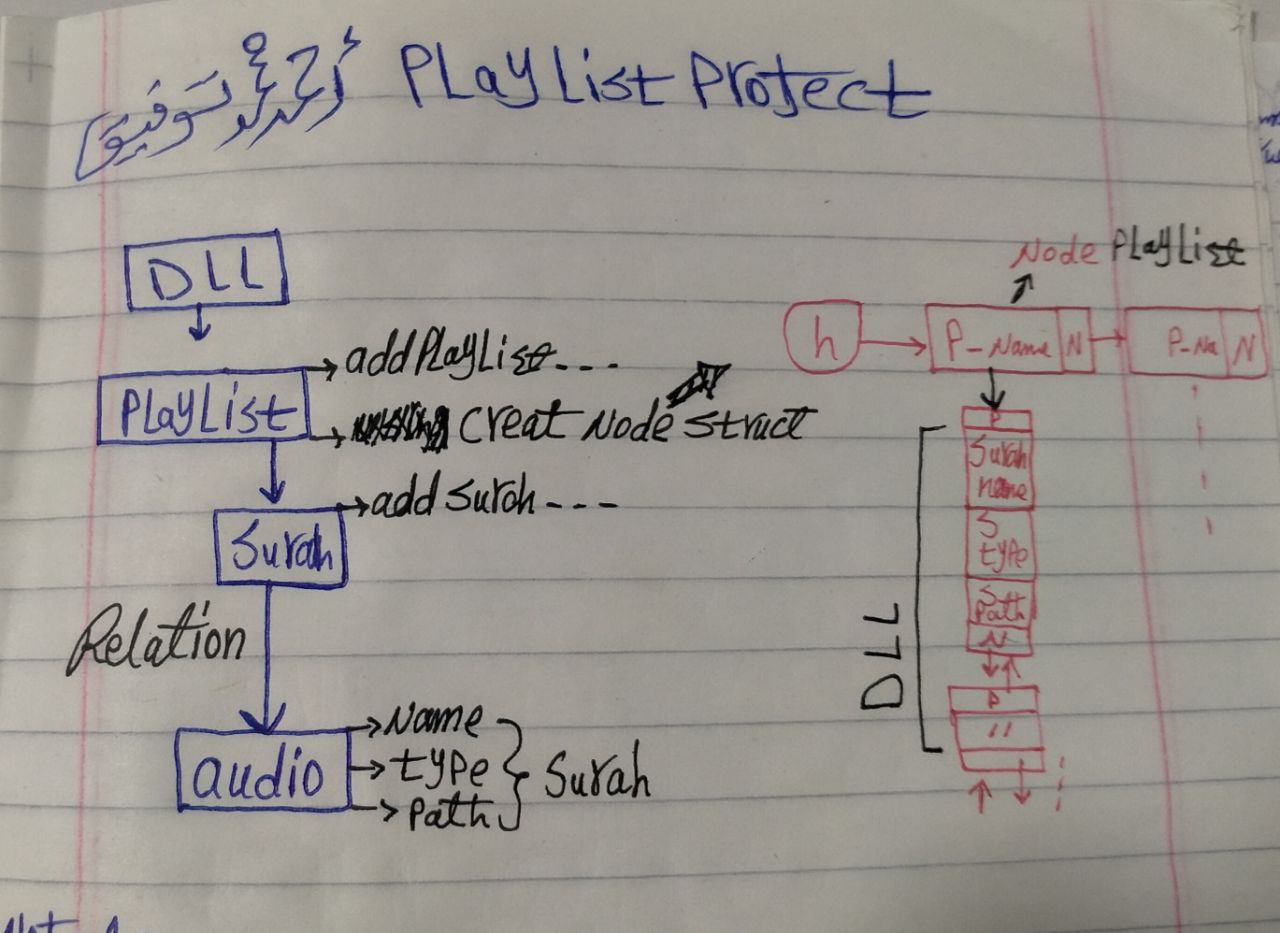 أحمد توفيق PLayList Project
DLL
PLayList
→ addPLayList - - -
→ Creat Node struct
Surah
→ add Surah - - -
Relation
audio
→ Name
→ type
→ Path
Surah
Node PLayList
h
P-Name N
P-Na N
P
Surah
name
S
type
S
Path
N
P
"
DLL